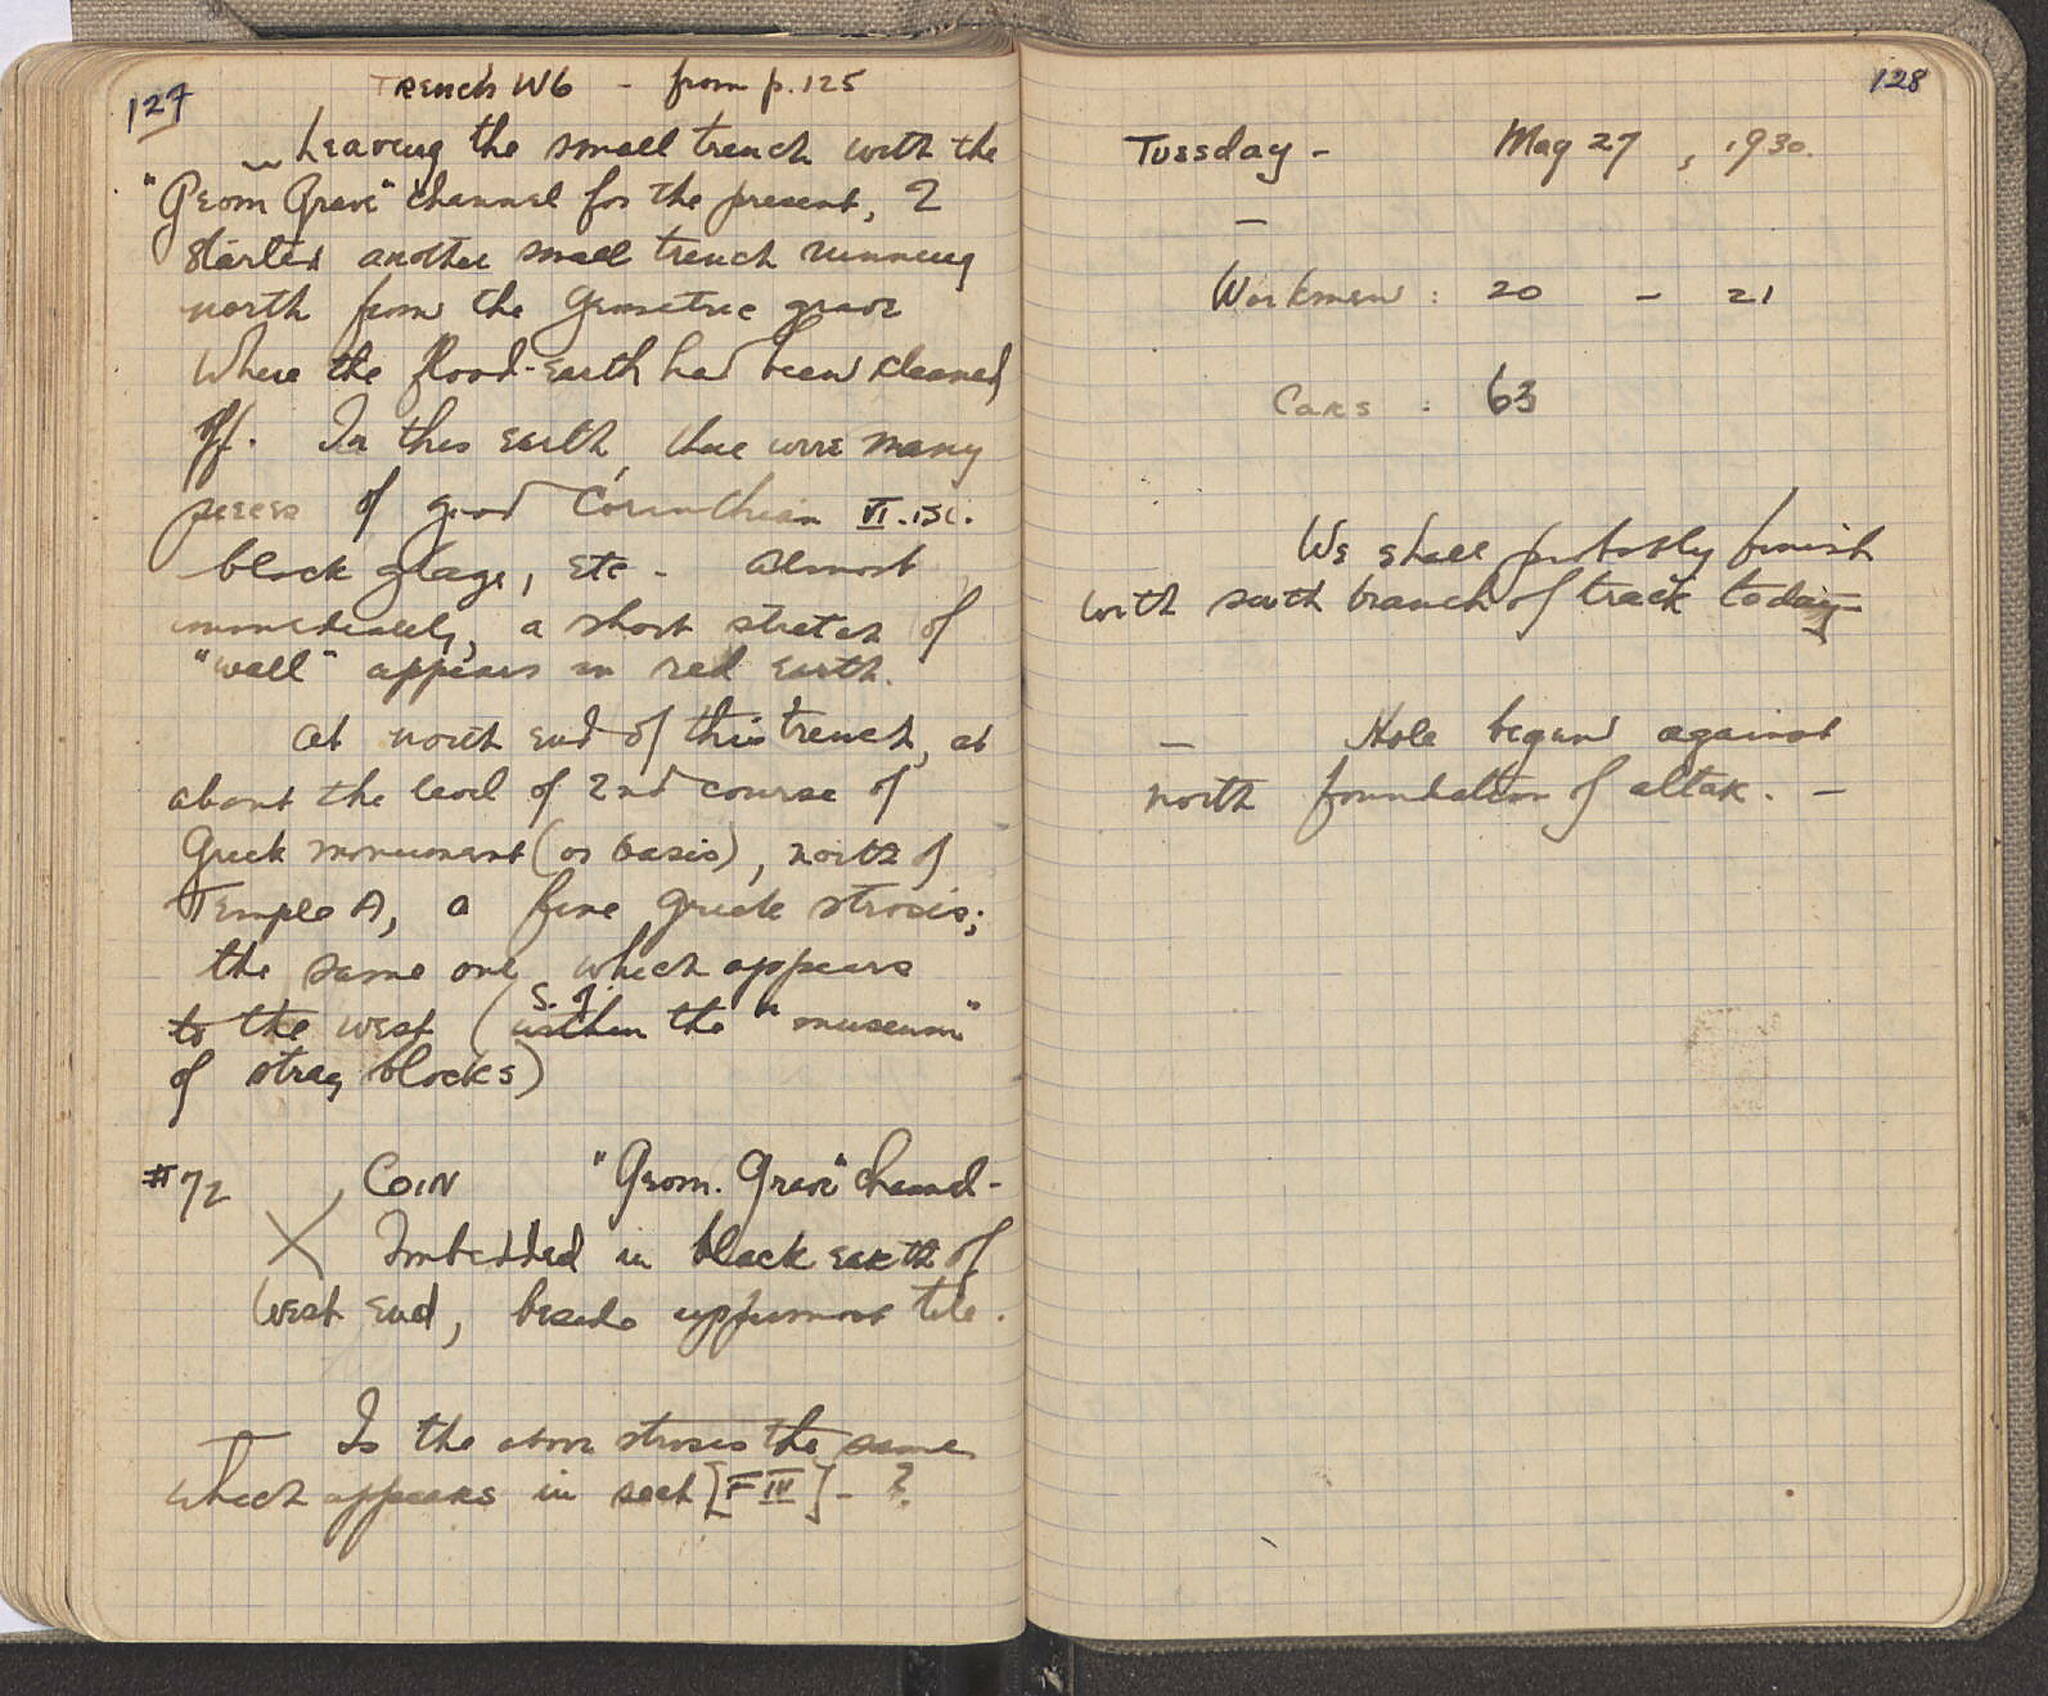 127
Trench W6 - from p. 125
Leaving the small trench with the
"Geom Grave" channel for the present, I
started another small trench running
north from the Geometric grave
where the flood-earth had been cleaned
off. In this earth, there were many
pieces of good Corinthian VI. BC.
black glaze, etc - Almost
immediately, a short stretch of
"wall" appears in red earth.
At north end of this trench, at
about the level of 2nd course of
Greek monument (or basis), north of
Temple A, a fine Greek strosis;
the same one which appears
S. of
to the west (within the "museum"
of stray blocks)
#72 X COIN "Geom. Grave" channel -
Imbedded in black earth of
West end, beside uppermost tile.
— Is the above strosis the same
which appears in sect [F IV] - ?
128
Tuesday - May 27, 1930.
—
Workmen : 20 - 21
Cars : 63
We shall probably finish
with south branch of track today -
— Hole begun against
north foundation of altar. —